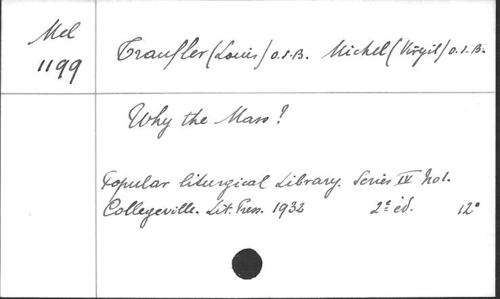 Mel
1199
Traufler (Louis) O.S.B. Michel (Virgil) O.S.B.
Why the Mass?
Popular liturgical Library. Series IV No1.
Collegeville. Lit. Press. 1932 2e éd. 12°